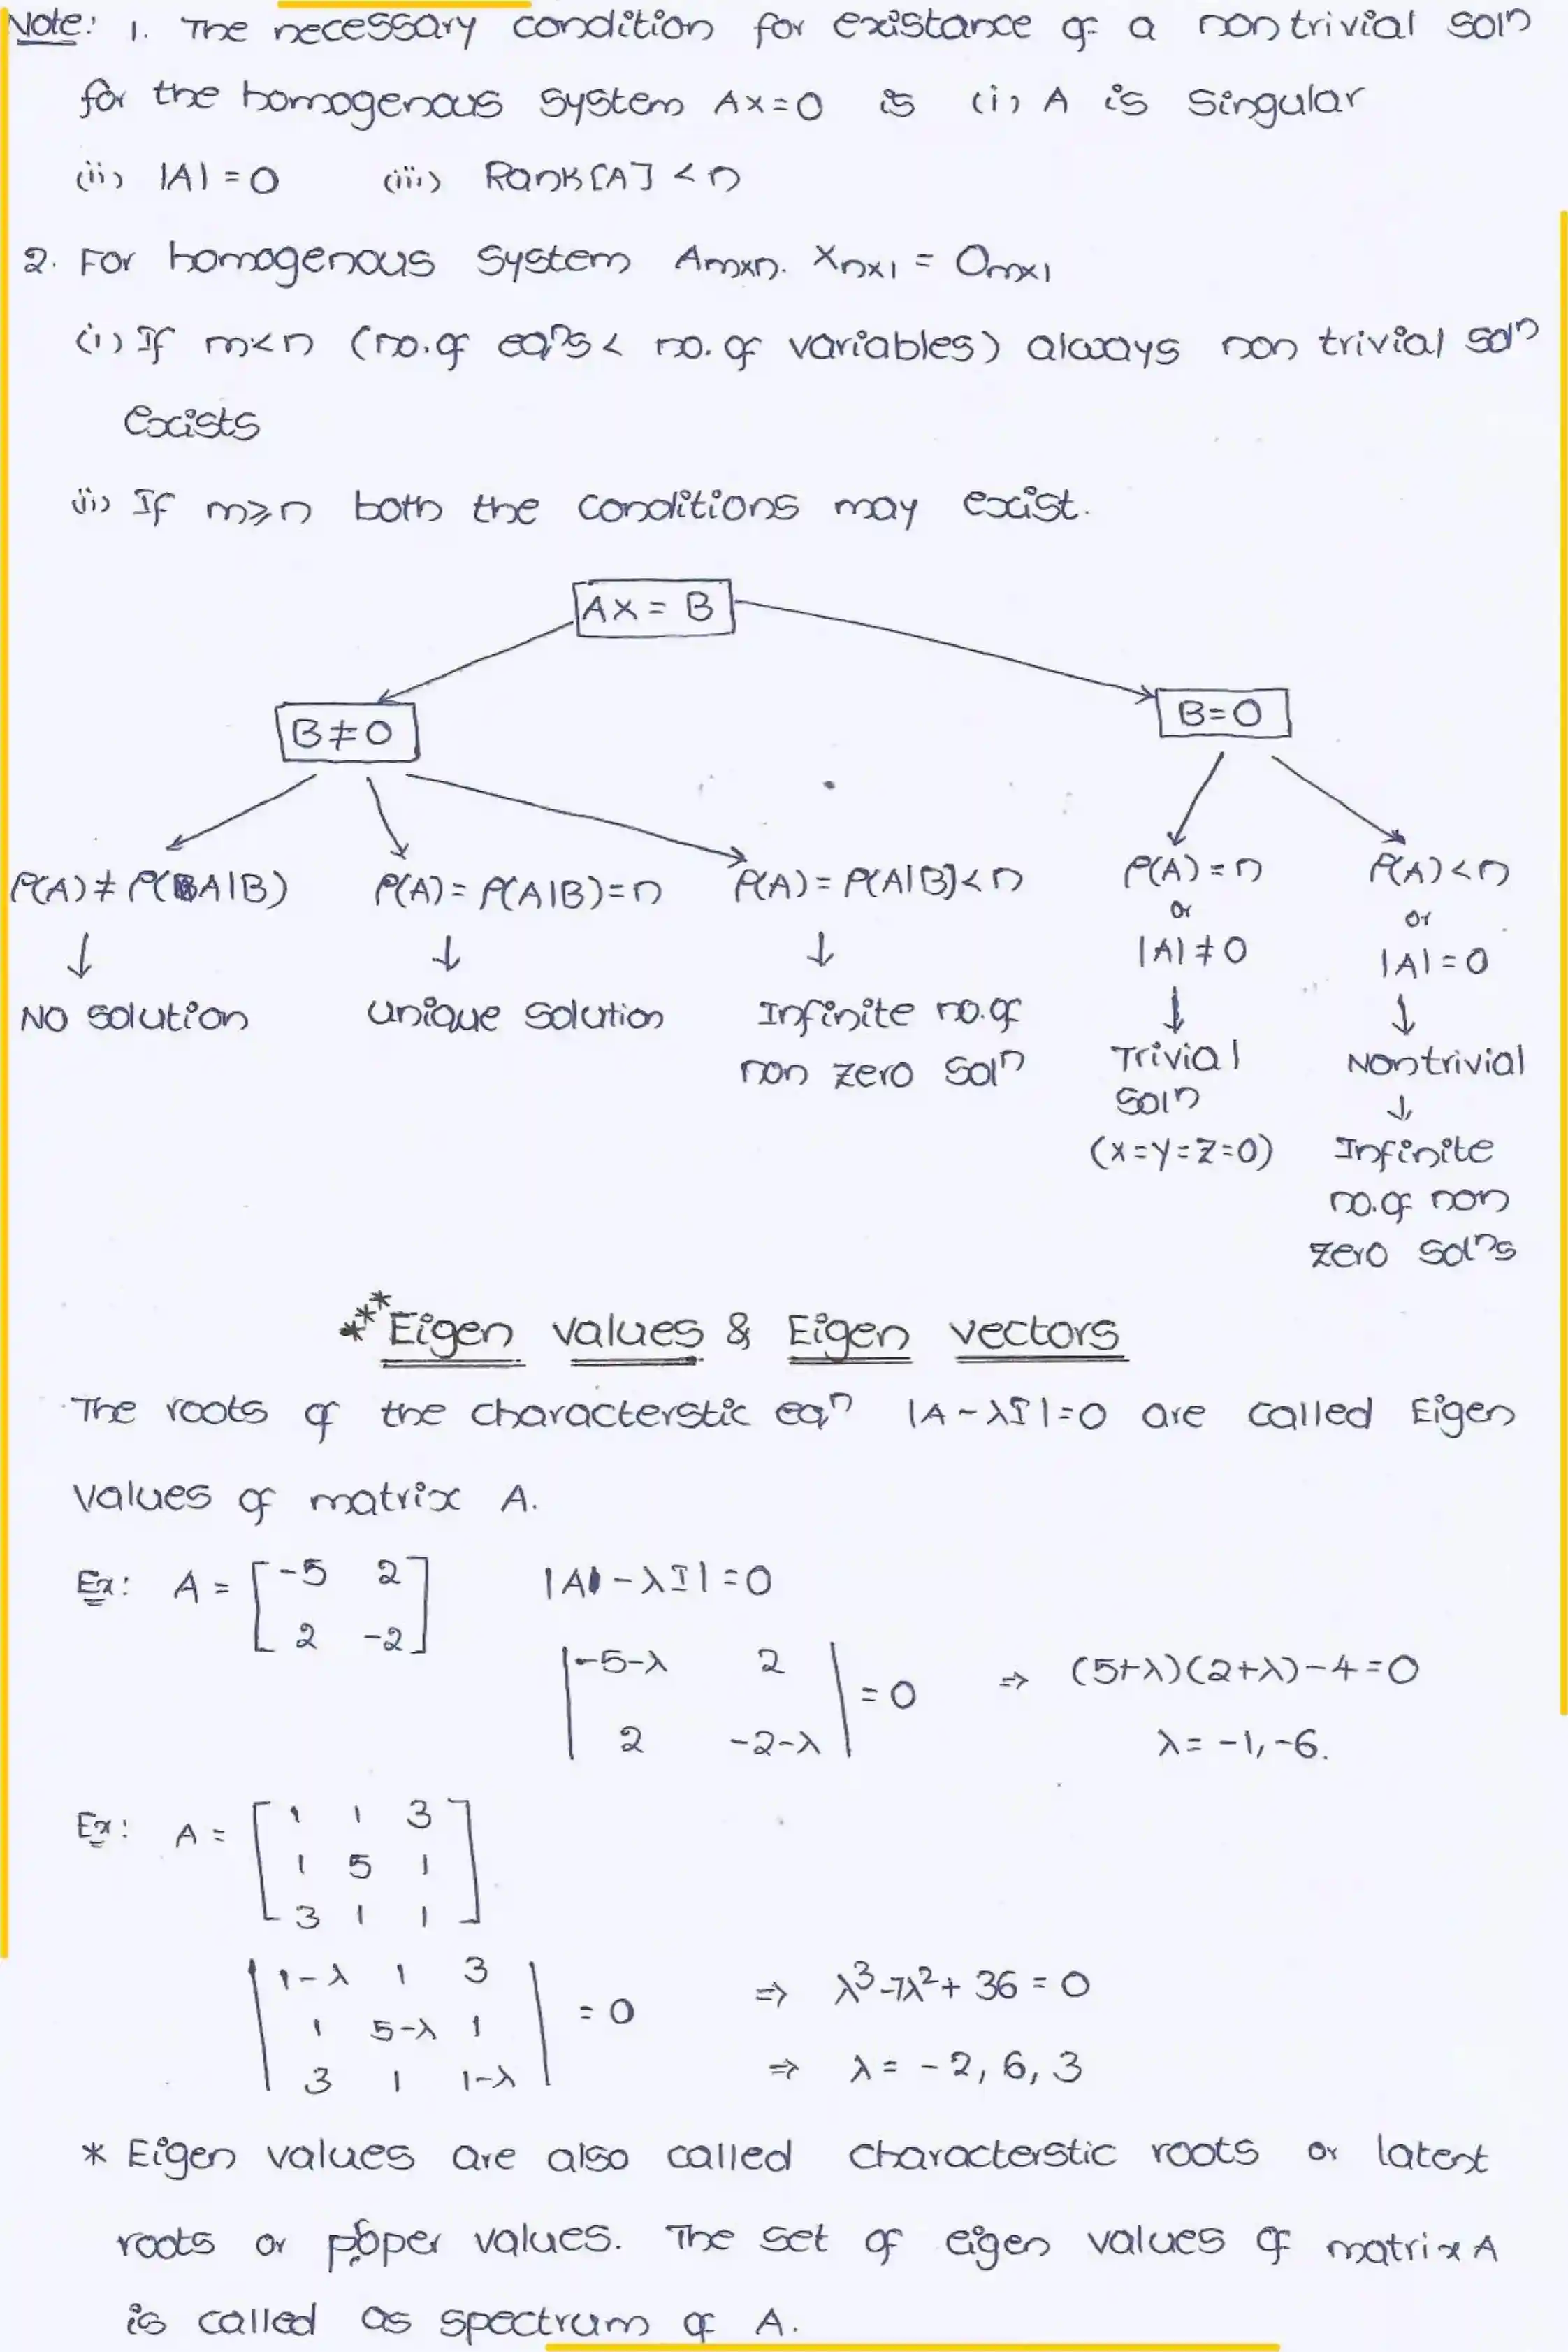 Note: 1. The necessary condition for existance of a nontrivial solⁿ
for the homogenous system AX=0 is (i) A is singular
(ii) |A| = 0 (iii) Rank[A] < n
2. For homogenous system Amxn. Xnx1 = Omx1
(i) If m<n (no.of eqⁿs < no. of variables) always non trivial solⁿ
exists
(ii) If m⩾n both the conditions may exist.
AX = B
B≠0
B=0
ρ(A) ≠ ρ(A|B)
ρ(A) = ρ(A|B) = n
ρ(A) = ρ(A|B] < n
ρ(A) = n
or
|A| ≠ 0
ρ(A) < n
or
|A| = 0
↓ ↓ ↓ ↓ ↓
NO solution
unique solution
Infinite no.of
non zero solⁿ
Trivial
solⁿ
(x=y=z=0)
Nontrivial
↓
Infinite
no.of non
zero solⁿs
*** Eigen values & Eigen vectors
The roots of the characterstic eqⁿ |A-λI|=0 are called Eigen
values of matrix A.
Ex: A = [-5 2
2 -2]
|A - λI| = 0
|-5-λ 2
2 -2-λ| = 0 ⇒ (5+λ)(2+λ)-4=0
λ = -1, -6.
Ex: A = [1 1 3
1 5 1
3 1 1]
|1-λ 1 3
1 5-λ 1
3 1 1-λ| = 0 ⇒ λ³-7λ²+36 = 0
⇒ λ = -2, 6, 3
* Eigen values are also called characterstic roots or latent
roots or proper values. The set of eigen values of matrix A
is called as spectrum of A.